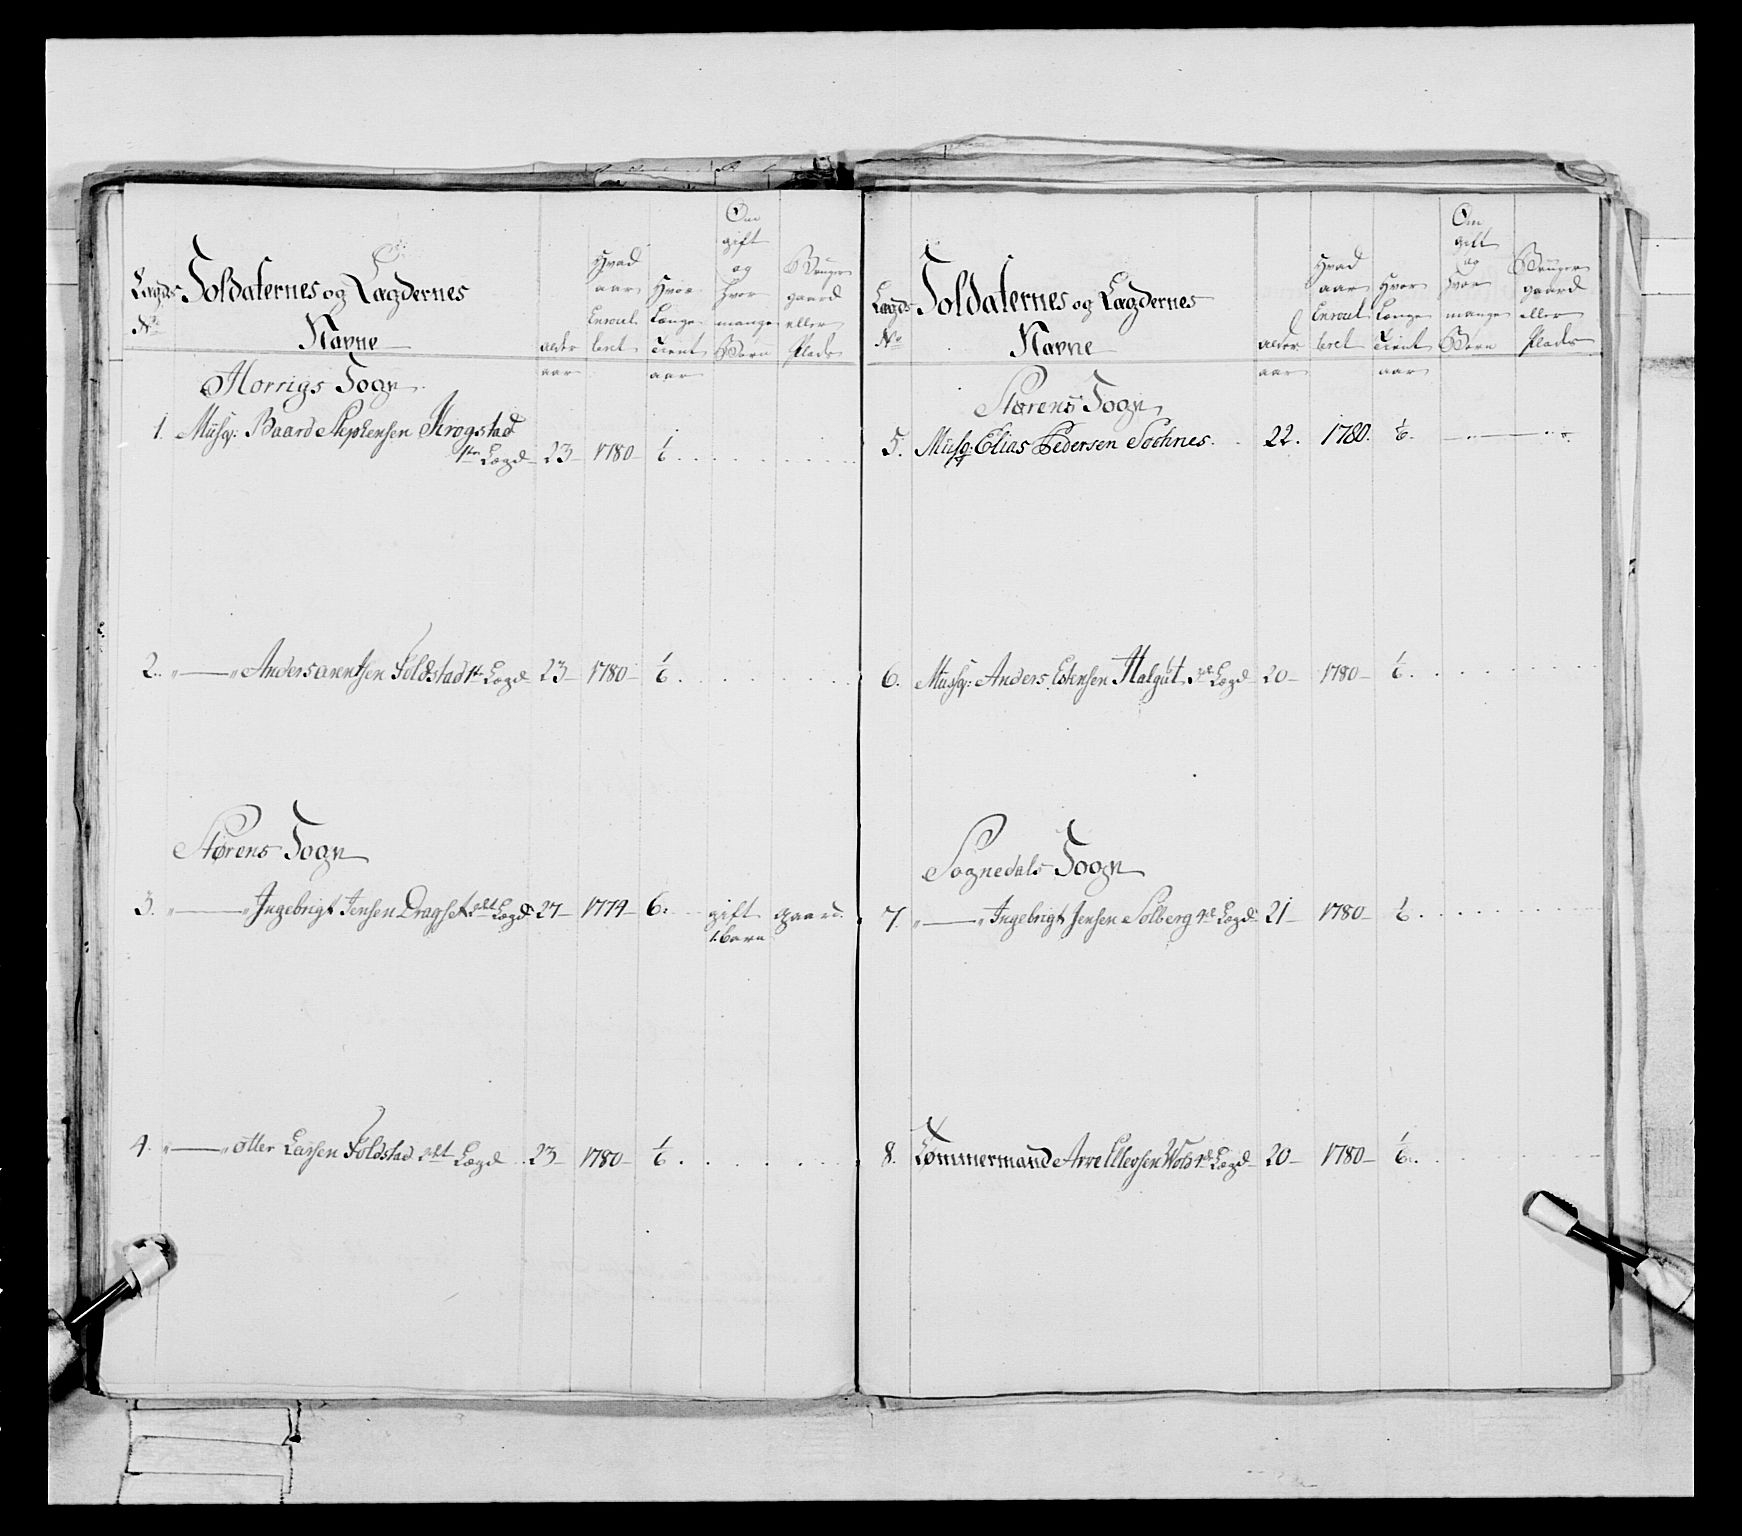 Lægds N:º
Soldaternes og Lægdernes
Navne
alder
aar
Hvad
aar
Enroul
leret
Hvor
Længe
Tient
aar
Om
gift
og
hvor
mange
Børn
Bruger
gaard
eller
Plads
Horrigs Sogn
1. Musq: Baard Stephensen Krogstad
1ste Lægd 23 1780 1/6
2. " — " Anders arentsen Foldstad 1te Lægd 23 1780 1/6
Størens Sogn
3. " — " Ingebrigt Jensen Dragset Lægd 27 1774 6. gift gaard.
1. barn
4. " — " otter Larsen Foldstad Lægd 23 1780 1/6
Lægds Nº
Soldaternes og Lægdernes
Navne
alder
aar
Hvad
aar
Enroul
leret
Hvor
Længe
Tient
aar
Om
gift
og
hvor
mange
Børn
Bruger
gaard
eller
Plads
Størens Sogn
5. Musq: Elias Pedersen Sochnes. 22. 1780. 1/6.
6. Musq: Anders Estensen Halgut Lægd 20 1780 1/6
Sognedals Sogn
7. " — " Ingebrigt Jensen Solberg Lægd 21 1780 1/6
8. Tømmermand Arve Ellevsen Wold Lægd 20 1780 1/6